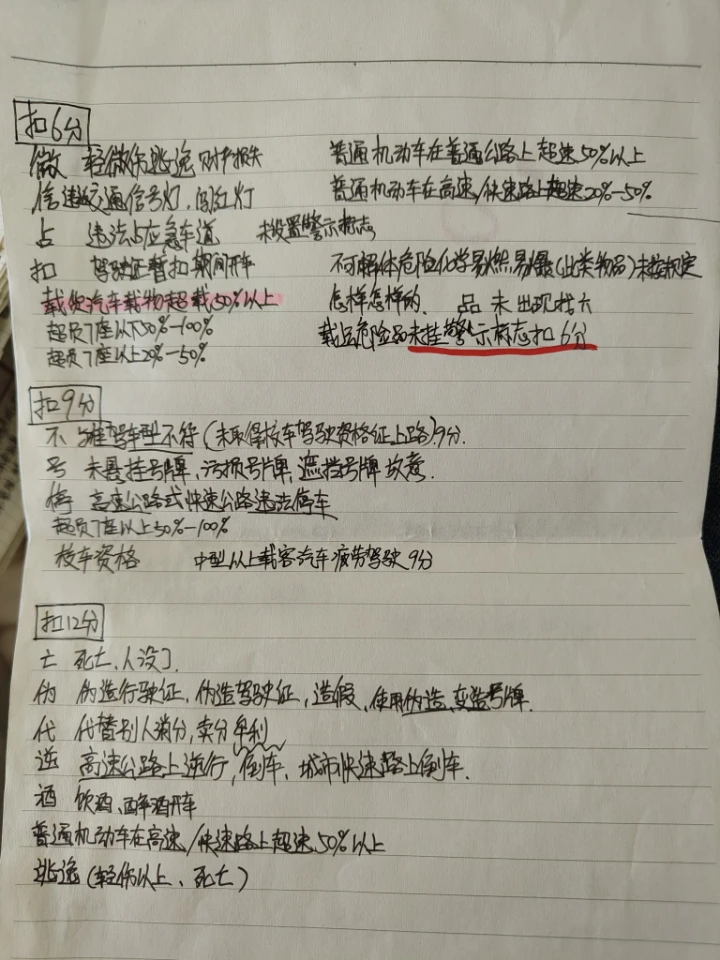 扣6分
微 轻微伤逃逸 财产损失
信 违反交通信号灯、闯红灯
占 违法占应急车道 未设置警示标志
扣 驾驶证暂扣期间开车
载货汽车载物超载50%以上
超员7座以下50%-100%
超员7座以上20%-50%
普通机动车在普通公路上超速50%以上
普通机动车在高速/快速路上超速20%-50%
不可解体危险化学易燃易爆(此类物品)未按规定
怎样怎样的、 品 未 出现扣六
载运危险品未挂警示标志扣6分
扣9分
不 准驾车型不符(未取得校车驾驶资格证上路)9分.
号 未悬挂号牌、污损号牌、遮挡号牌 故意.
停 高速公路或快速公路违法停车
超员7座以上50%-100%
校车资格 中型以上载客汽车疲劳驾驶9分
扣12分
亡 死亡、人没了.
伪 伪造行驶证,伪造驾驶证,造假、使用伪造、变造号牌.
代 代替别人消分,卖分牟利
逆 高速公路上逆行,倒车、城市快速路上倒车.
酒 饮酒、醉酒开车
普通机动车在高速/快速路上超速50%以上
逃逸(轻伤以上、死亡)